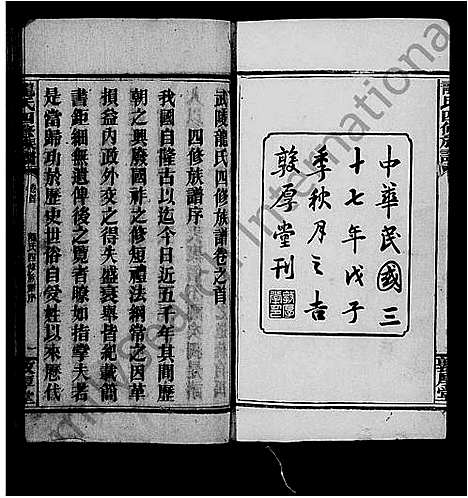 中華民國三
十七年戊子
季秋月之吉
敦厚堂刊
武陵龍氏四修族譜卷之首
四修族譜序
我國自隆古以迄今日近五千年其間歷
朝之興廢國祚之修短禮法綱常之因革
損益內政外交之得失盛衰與皆紀載簡
書鉅細無遺俾後之覽者瞭如指掌夫者
是當歸功於歷史世俗自受姓以來歷代
龍氏四修族譜
敦厚堂
FamilySearch International